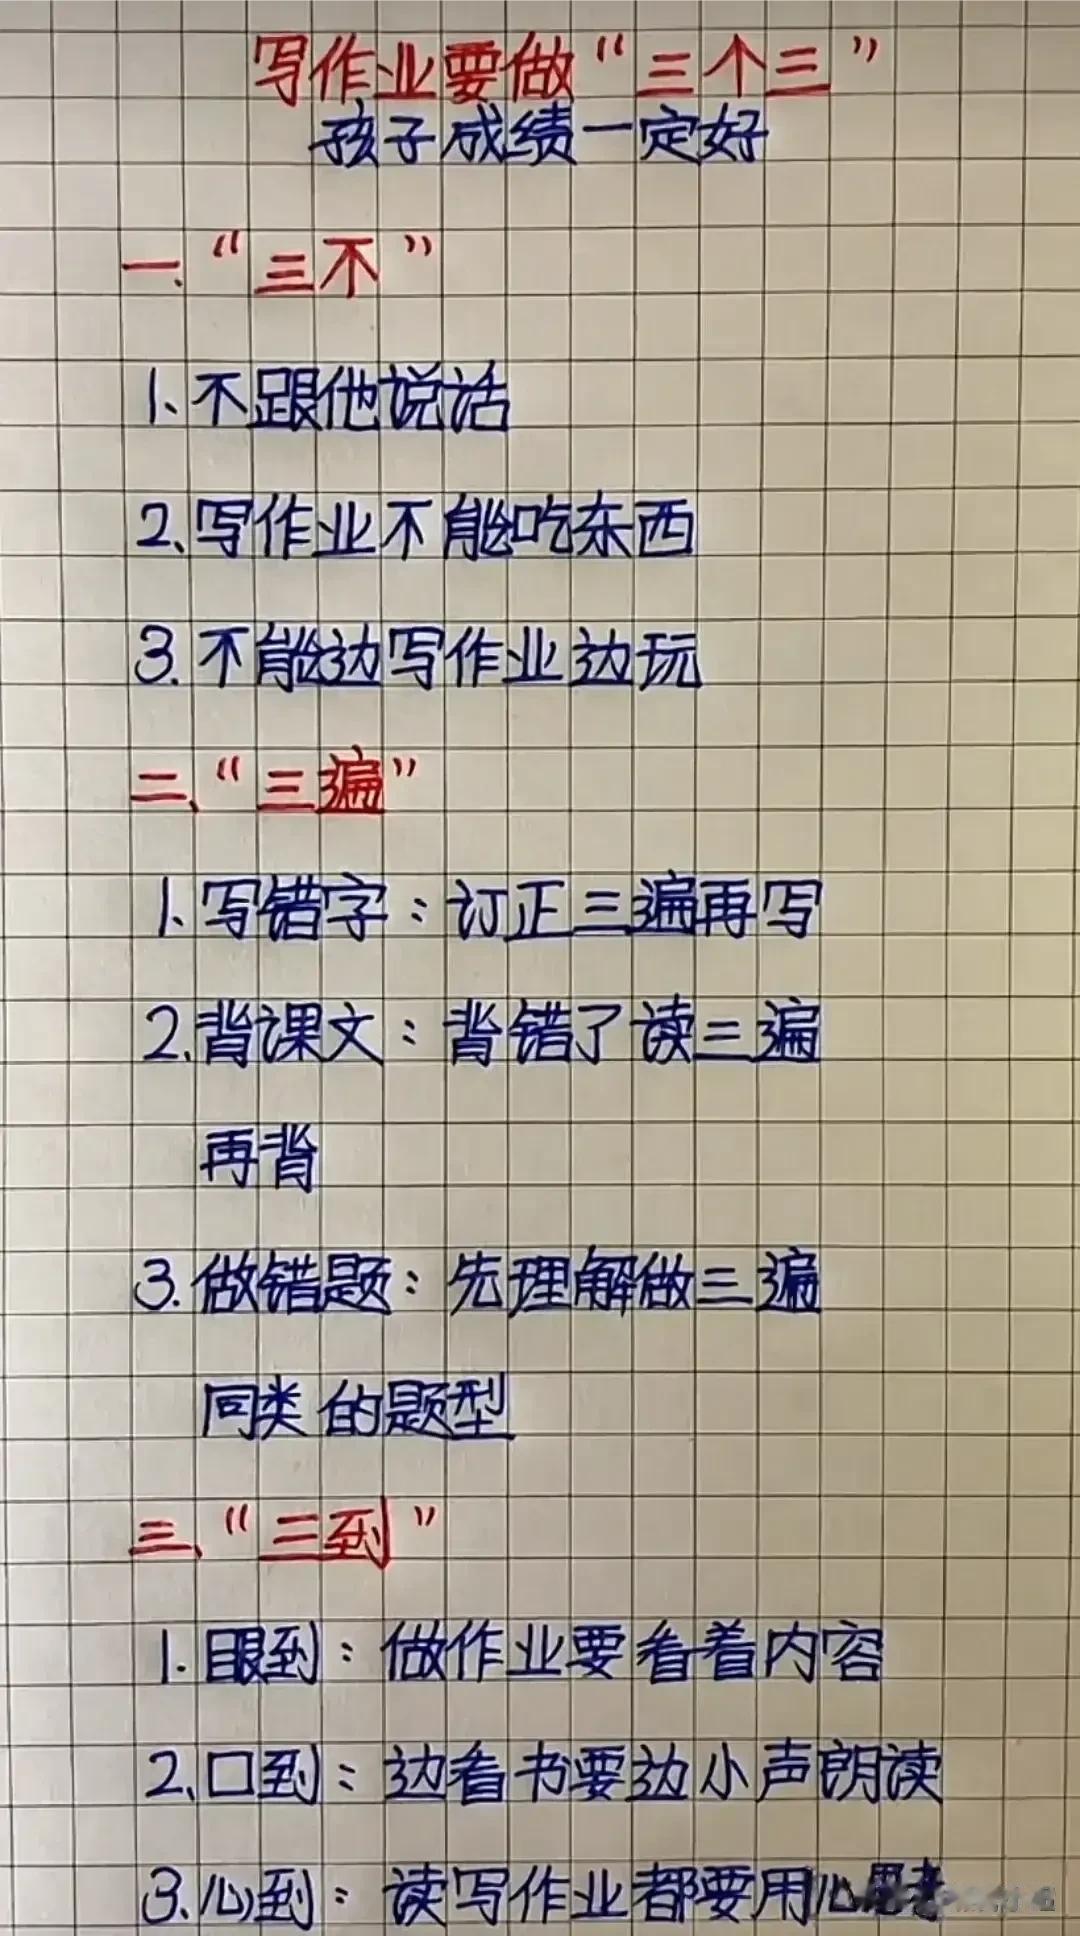 写作业要做“三个三”
孩子成绩一定好
一、“三不”
1、不跟他说话
2、写作业不能吃东西
3、不能边写作业边玩
二、“三遍”
1、写错字：订正三遍再写
2、背课文：背错了读三遍
再背
3、做错题：先理解做三遍
同类的题型
三、“三到”
1、眼到：做作业要看着内容
2、口到：边看书要边小声朗读
3、心到：读写作业都要用心思考